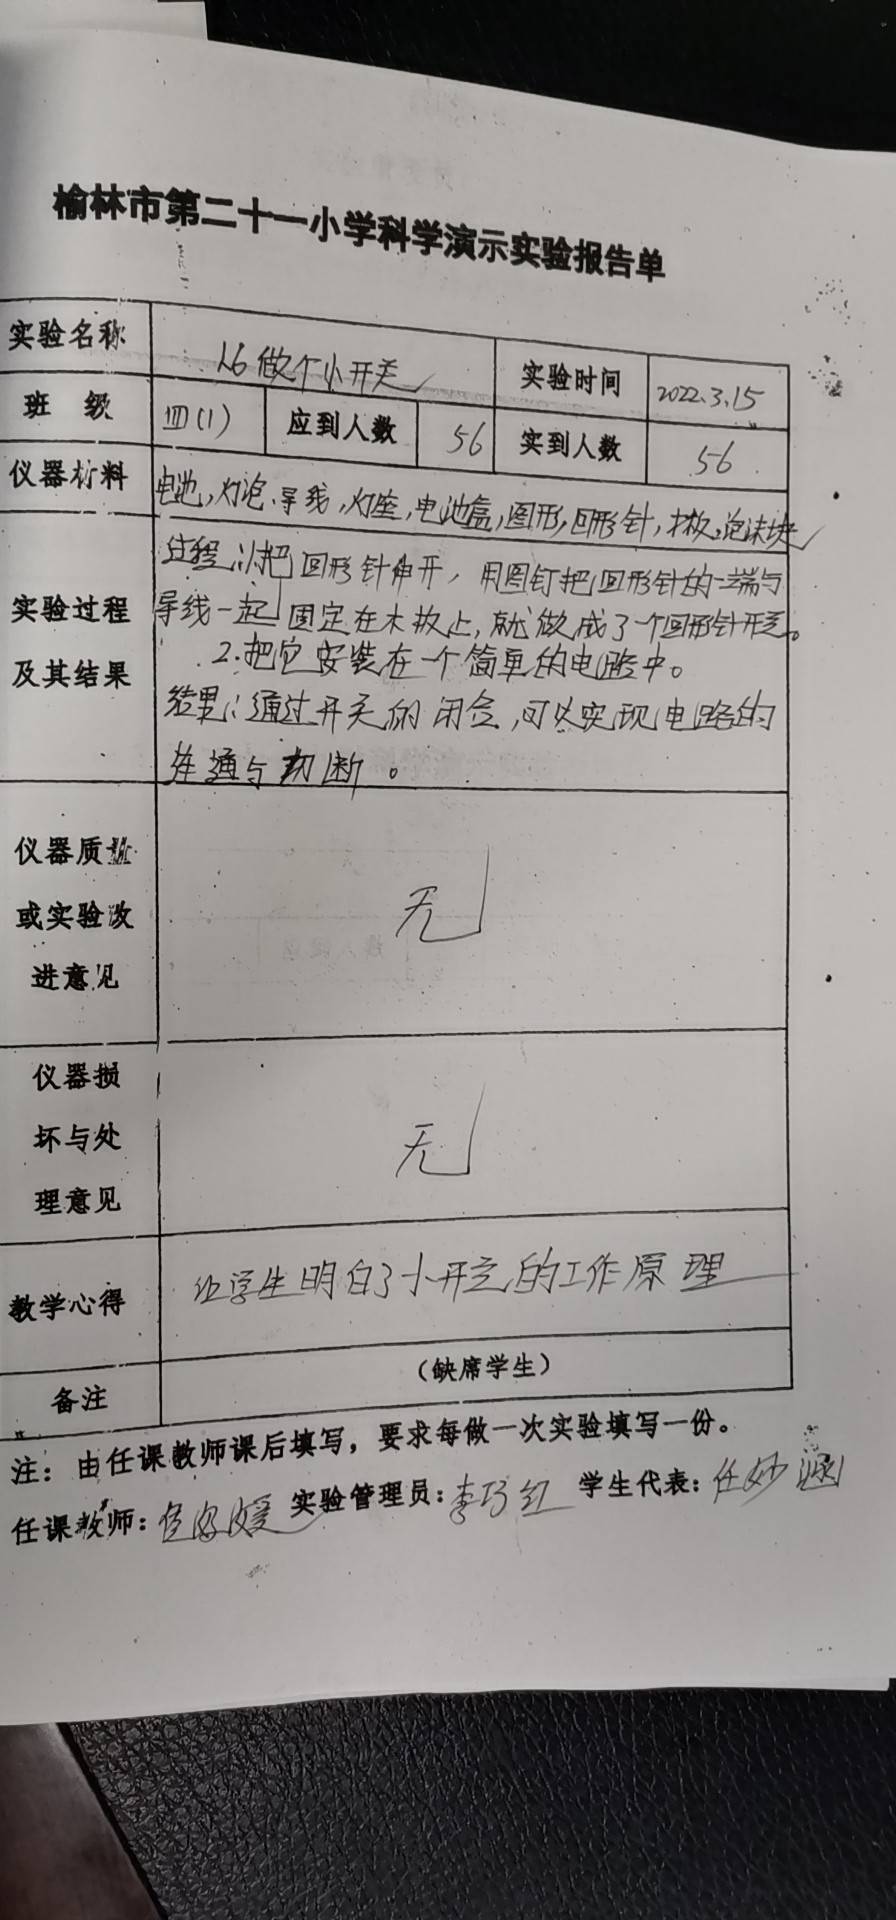 榆林市第二十一小学科学演示实验报告单
实验名称 1.6 做个小开关 实验时间 2022.3.15
班 级 四(1) 应到人数 56 实到人数 56
仪器材料 电池,灯泡、导线,灯座,电池盒,图形,回形针,木板,泡沫块
过程:1.把回形针伸开,用图钉把回形针的一端与
实验过程 导线一起固定在木板上,就做成了一个回形针开关。
及其结果 2.把它安装在一个简单的电路中。
结果:通过开关的闭合,可以实现电路的
连通与切断。
仪器质量
或实验改 无
进意见
仪器损
坏与处 无
理意见
教学心得 让学生明白了小开关的工作原理
备注 (缺席学生)
注:由任课教师课后填写,要求每做一次实验填写一份。
任课教师: 实验管理员:李巧红 学生代表:任妙涵